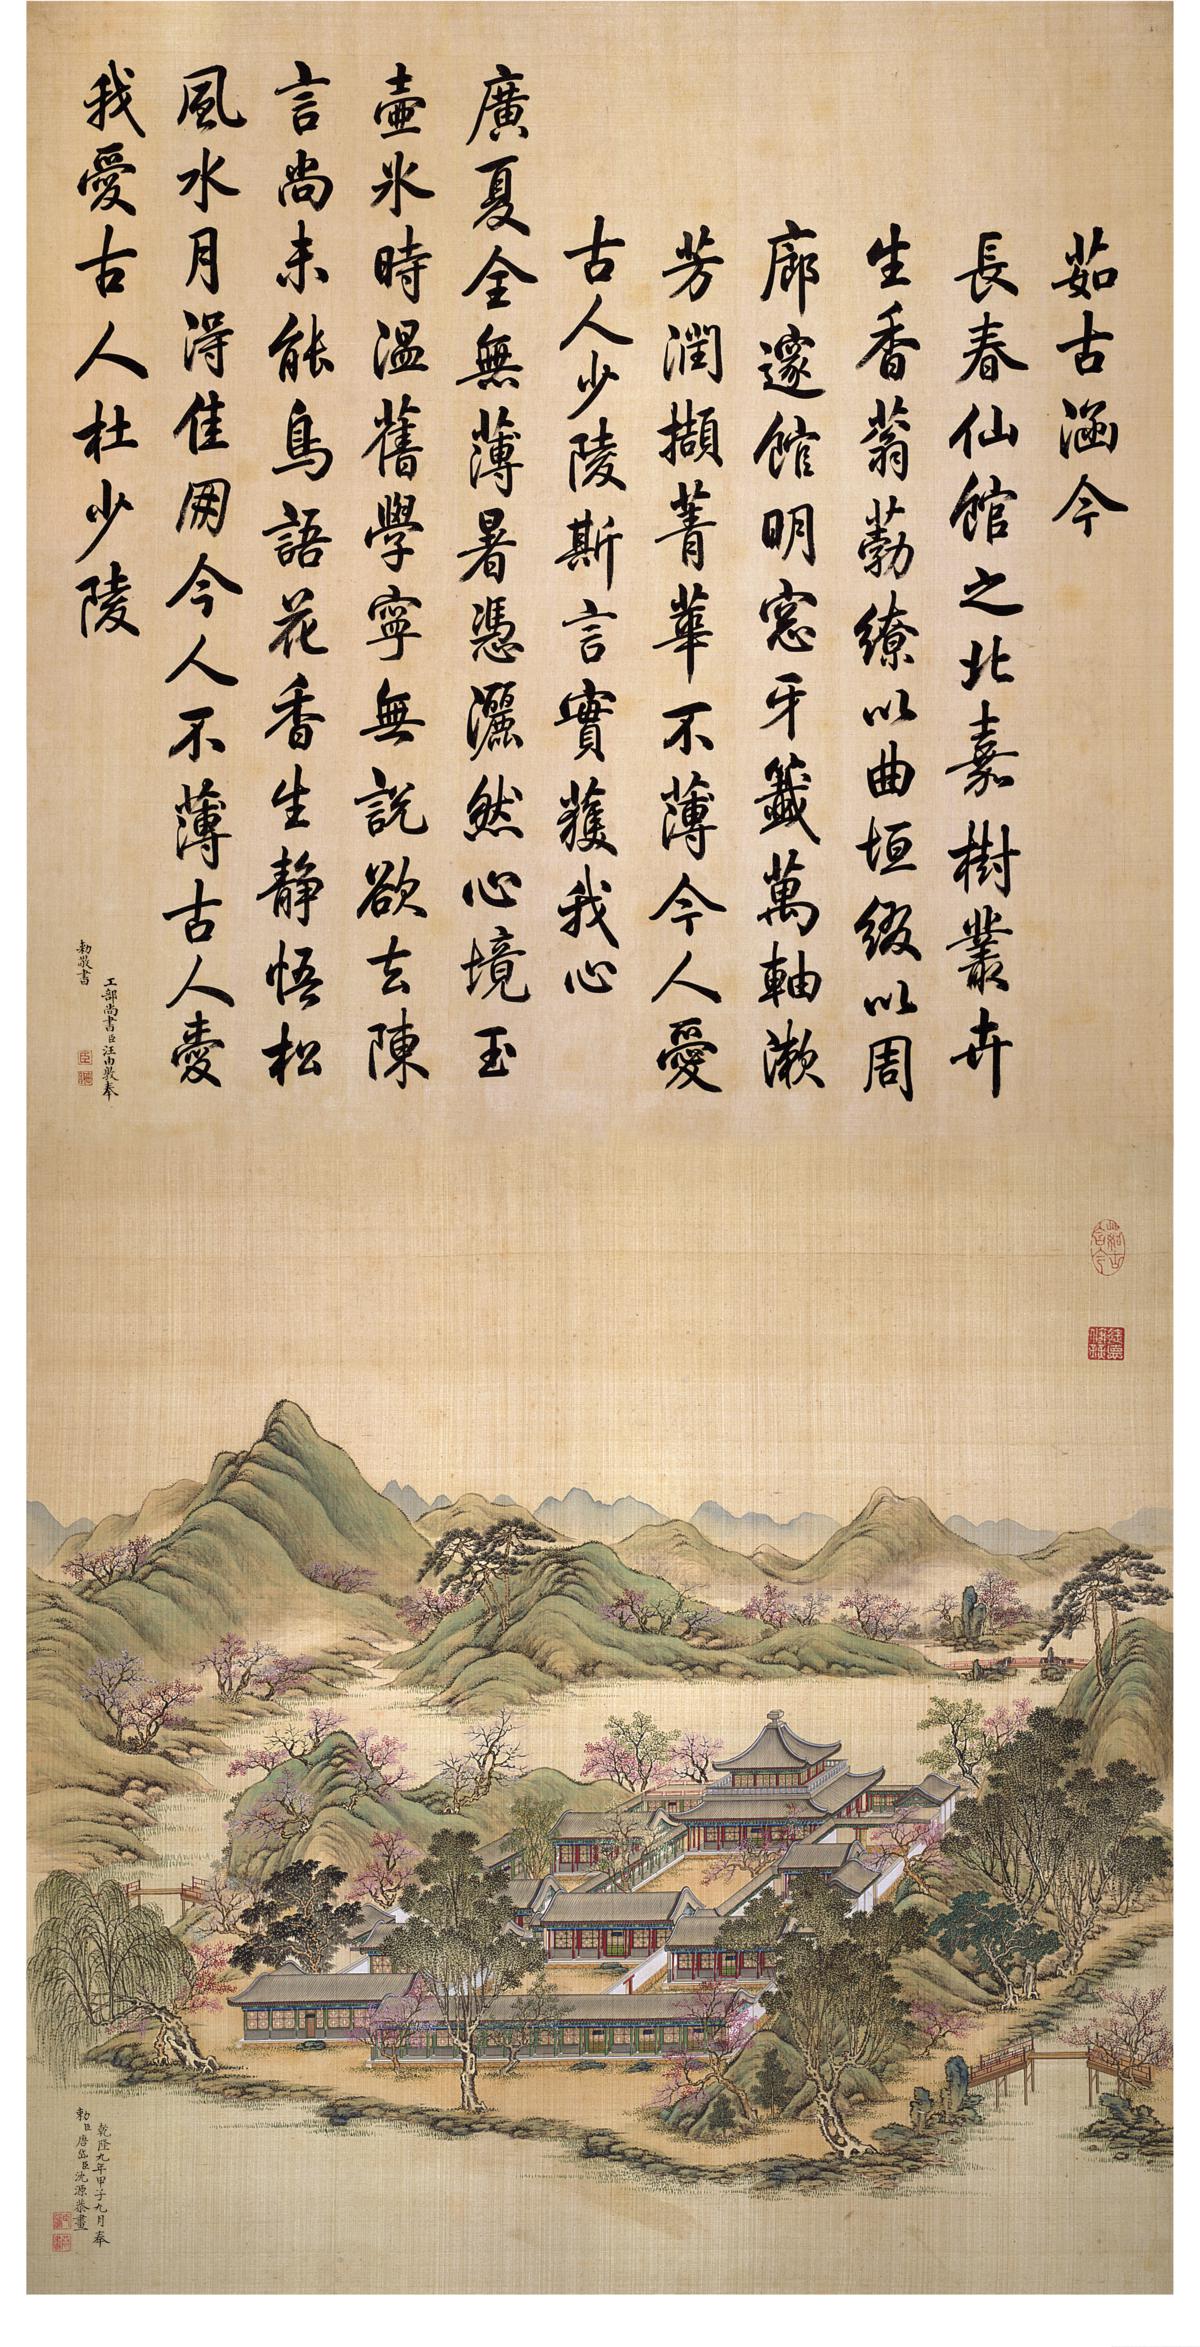 茹古涵今
長春仙館之北嘉樹叢卉
生香蓊葧繚以曲垣綴以周
廊邃館明窓牙籤萬軸漱
芳潤擷菁華不薄今人愛
古人少陵斯言實獲我心
廣夏全無薄暑憑灑然心境玉
壺冰時溫舊學寧無說欲去陳
言尚未能鳥語花香生靜悟松
風水月淂佳朋今人不薄古人愛
我愛古人杜少陵
工部尚書臣汪由敦奉
勅敬書
乾隆九年甲子九月奉
勅臣唐岱臣沈源恭畫